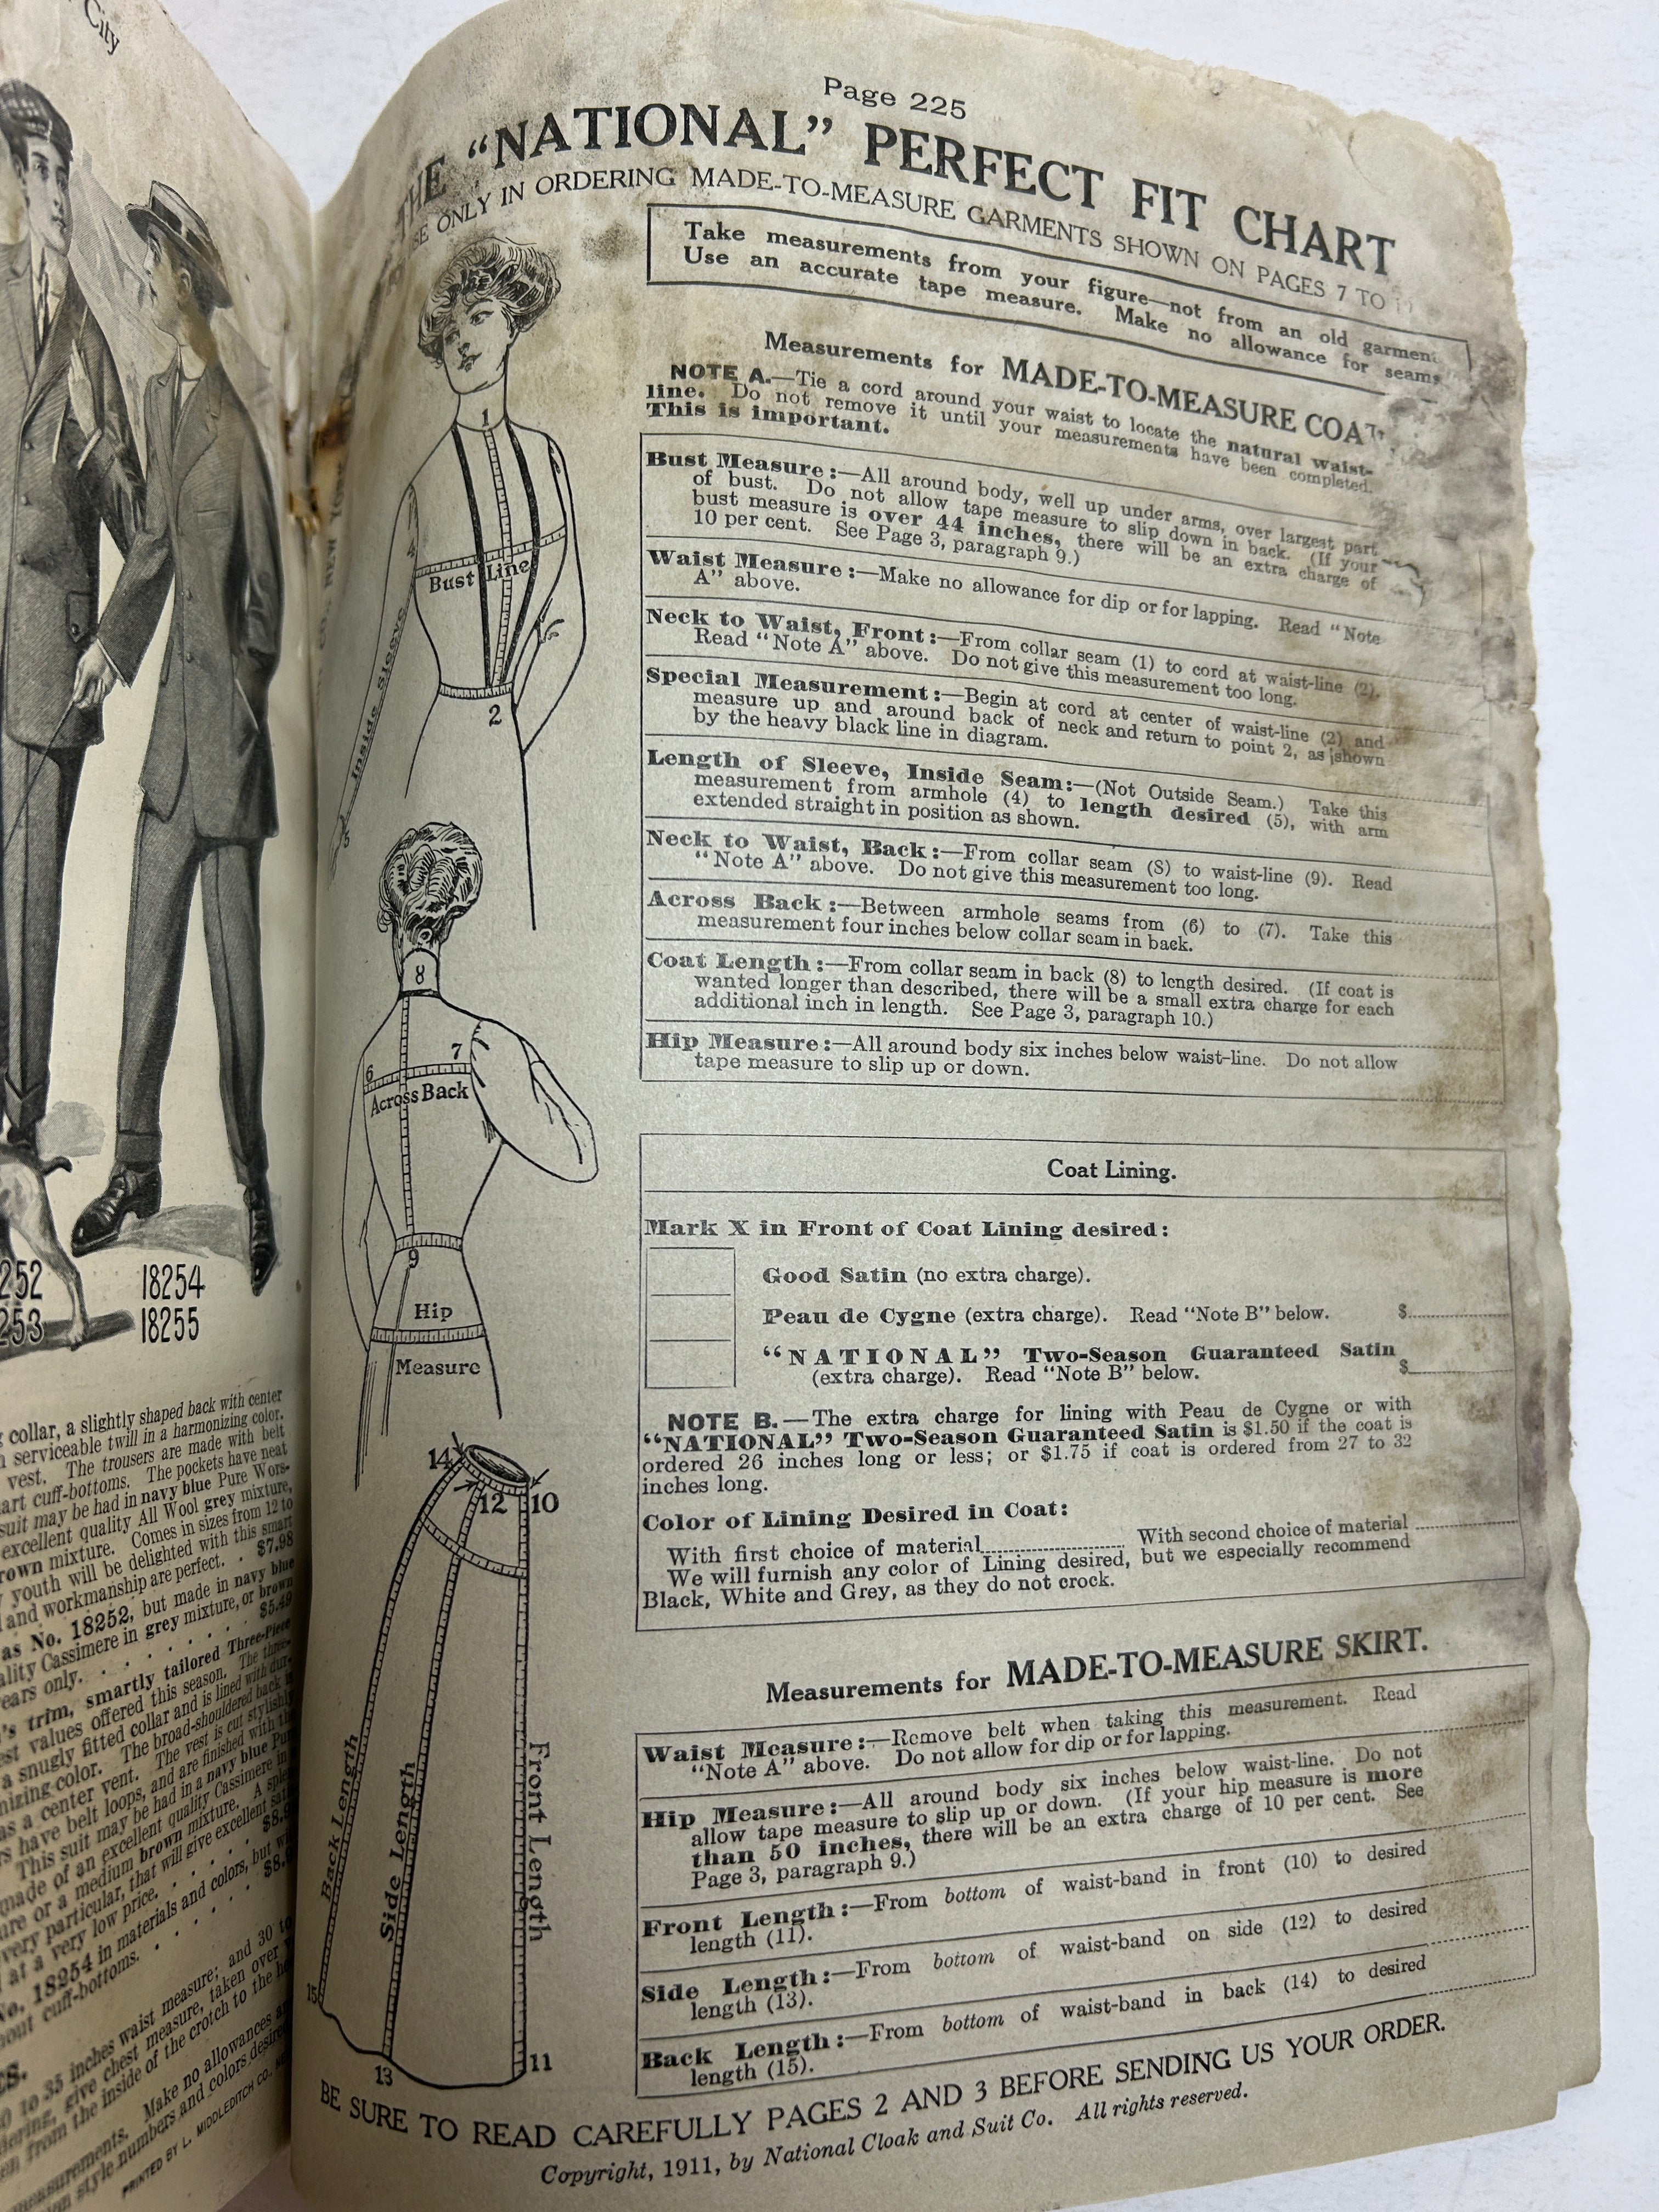 City
252
253
18254
18255
collar, a slightly shaped back with center
serviceable twill in a harmonizing color.
vest. The trousers are made with belt
art cuff-bottoms. The pockets have neat
suit may be had in navy blue Pure Wors-
excellent quality All Wool grey mixture,
rown mixture. Comes in sizes from 12 to
youth will be delighted with this smart
and workmanship are perfect. . $7.98
as No. 18252, but made in navy blue
ality Cassimere in grey mixture, or brown
ears only. . . . . . . . $5.49
's trim, smartly tailored Three-Piece
est values offered this season. The three-
a snugly fitted collar and is lined with dur-
nizing color. The broad-shouldered back is
as a center vent. The vest is cut stylishly
rs have belt loops, and are finished with the
This suit may be had in a navy blue Pu
made of an excellent quality Cassimere in
ure or a medium brown mixture. A sple
very particular, that will give excellent sat
at a very low price. . . . . . $8.
No. 18254 in materials and colors, but wi
hout cuff-bottoms. . . . . . $8.
0 to 35 inches waist measure; and 30 to
dering, give chest measure, taken over
en from the inside of the crotch to the he
measurements. Make no allowances
style numbers and colors desired
PRINTED BY L. MIDDLEDITCH CO., NE
Page 225
THE "NATIONAL" PERFECT FIT CHART
SE ONLY IN ORDERING MADE-TO-MEASURE GARMENTS SHOWN ON PAGES 7 TO
Take measurements from your figure—not from an old garment
Use an accurate tape measure. Make no allowance for seams
Measurements for MADE-TO-MEASURE COAT
NOTE A.—Tie a cord around your waist to locate the natural waist-
line. Do not remove it until your measurements have been completed.
This is important.
Bust Measure:—All around body, well up under arms, over largest part
of bust. Do not allow tape measure to slip down in back. (If your
bust measure is over 44 inches, there will be an extra charge of
10 per cent. See Page 3, paragraph 9.)
Waist Measure:—Make no allowance for dip or for lapping. Read "Note
A" above.
Neck to Waist, Front:—From collar seam (1) to cord at waist-line (2).
Read "Note A" above. Do not give this measurement too long.
Special Measurement:—Begin at cord at center of waist-line (2) and
measure up and around back of neck and return to point 2, as shown
by the heavy black line in diagram.
Length of Sleeve, Inside Seam:—(Not Outside Seam.) Take this
measurement from armhole (4) to length desired (5), with arm
extended straight in position as shown.
Neck to Waist, Back:—From collar seam (8) to waist-line (9). Read
"Note A" above. Do not give this measurement too long.
Across Back:—Between armhole seams from (6) to (7). Take this
measurement four inches below collar seam in back.
Coat Length:—From collar seam in back (8) to length desired. (If coat is
wanted longer than described, there will be a small extra charge for each
additional inch in length. See Page 3, paragraph 10.)
Hip Measure:—All around body six inches below waist-line. Do not allow
tape measure to slip up or down.
1
4
Bust Line
Inside Sleeve
2
5
8
7
6
Across Back
9
Hip
Measure
14
12
10
Back Length
Side Length
Front Length
15
13
11
Coat Lining.
Mark X in Front of Coat Lining desired:
Good Satin (no extra charge).
Peau de Cygne (extra charge). Read "Note B" below. $
"NATIONAL" Two-Season Guaranteed Satin
(extra charge). Read "Note B" below. $
NOTE B.—The extra charge for lining with Peau de Cygne or with
"NATIONAL" Two-Season Guaranteed Satin is $1.50 if the coat is
ordered 26 inches long or less; or $1.75 if coat is ordered from 27 to 32
inches long.
Color of Lining Desired in Coat:
With first choice of material With second choice of material
We will furnish any color of Lining desired, but we especially recommend
Black, White and Grey, as they do not crock.
Measurements for MADE-TO-MEASURE SKIRT.
Waist Measure:—Remove belt when taking this measurement. Read
"Note A" above. Do not allow for dip or for lapping.
Hip Measure:—All around body six inches below waist-line. Do not
allow tape measure to slip up or down. (If your hip measure is more
than 50 inches, there will be an extra charge of 10 per cent. See
Page 3, paragraph 9.)
Front Length:—From bottom of waist-band in front (10) to desired
length (11).
Side Length:—From bottom of waist-band on side (12) to desired
length (13).
Back Length:—From bottom of waist-band in back (14) to desired
length (15).
BE SURE TO READ CAREFULLY PAGES 2 AND 3 BEFORE SENDING US YOUR ORDER.
Copyright, 1911, by National Cloak and Suit Co. All rights reserved.